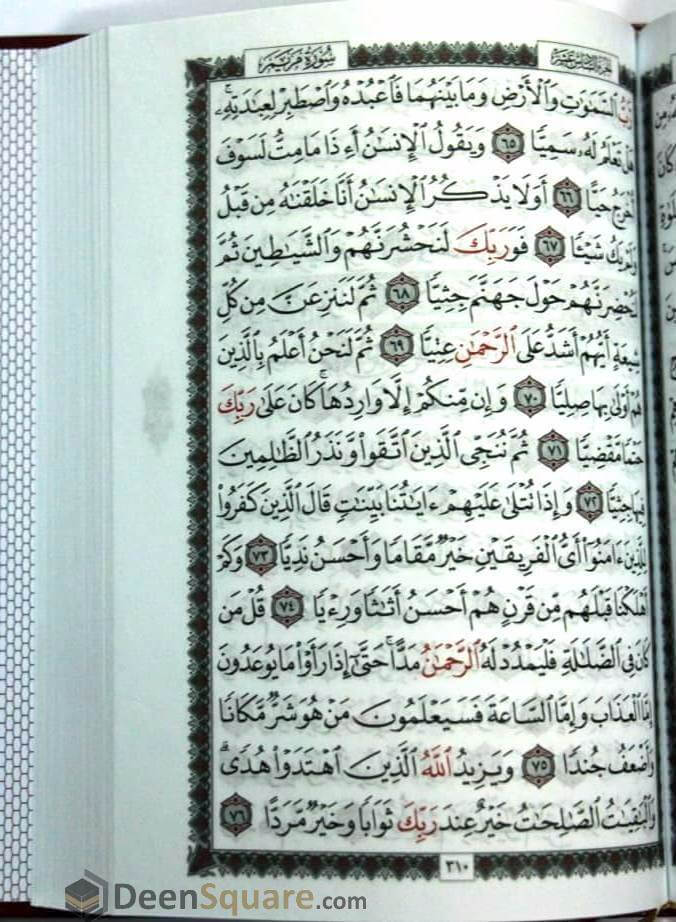 سُورَةُ مَرْيَمَ
الجزء السادس عشر
رَّبُّ السَّمَٰوَٰتِ وَالْأَرْضِ وَمَا بَيْنَهُمَا فَاعْبُدْهُ وَاصْطَبِرْ لِعِبَٰدَتِهِۦ ۚ
هَلْ تَعْلَمُ لَهُۥ سَمِيًّا ٦٥ وَيَقُولُ الْإِنسَٰنُ أَءِذَا مَا مِتُّ لَسَوْفَ
أُخْرَجُ حَيًّا ٦٦ أَوَلَا يَذْكُرُ الْإِنسَٰنُ أَنَّا خَلَقْنَٰهُ مِن قَبْلُ
وَلَمْ يَكُ شَيْـًٔا ٦٧ فَوَرَبِّكَ لَنَحْشُرَنَّهُمْ وَالشَّيَٰطِينَ ثُمَّ
لَنُحْضِرَنَّهُمْ حَوْلَ جَهَنَّمَ جِثِيًّا ٦٨ ثُمَّ لَنَنزِعَنَّ مِن كُلِّ
شِيعَةٍ أَيُّهُمْ أَشَدُّ عَلَى الرَّحْمَٰنِ عِتِيًّا ٦٩ ثُمَّ لَنَحْنُ أَعْلَمُ بِالَّذِينَ
هُمْ أَوْلَىٰ بِهَا صِلِيًّا ٧٠ وَإِن مِّنكُمْ إِلَّا وَارِدُهَا ۚ كَانَ عَلَىٰ رَبِّكَ
حَتْمًا مَّقْضِيًّا ٧١ ثُمَّ نُنَجِّي الَّذِينَ اتَّقَوا وَّنَذَرُ الظَّٰلِمِينَ
فِيهَا جِثِيًّا ٧٢ وَإِذَا تُتْلَىٰ عَلَيْهِمْ ءَايَٰتُنَا بَيِّنَٰتٍ قَالَ الَّذِينَ كَفَرُوا
لِلَّذِينَ ءَامَنُوا أَيُّ الْفَرِيقَيْنِ خَيْرٌ مَّقَامًا وَأَحْسَنُ نَدِيًّا ٧٣ وَكَمْ
أَهْلَكْنَا قَبْلَهُم مِّن قَرْنٍ هُمْ أَحْسَنُ أَثَٰثًا وَرِءْيًا ٧٤ قُلْ مَن
كَانَ فِي الضَّلَٰلَةِ فَلْيَمْدُدْ لَهُ الرَّحْمَٰنُ مَدًّا ۚ حَتَّىٰٓ إِذَا رَأَوْا مَا يُوعَدُونَ
إِمَّا الْعَذَابَ وَإِمَّا السَّاعَةَ فَسَيَعْلَمُونَ مَنْ هُوَ شَرٌّ مَّكَانًا
وَأَضْعَفُ جُندًا ٧٥ وَيَزِيدُ اللَّهُ الَّذِينَ اهْتَدَوْا هُدًى ۗ
وَالْبَٰقِيَٰتُ الصَّٰلِحَٰتُ خَيْرٌ عِندَ رَبِّكَ ثَوَابًا وَخَيْرٌ مَّرَدًّا ٧٦
٣١٠
DeenSquare.com